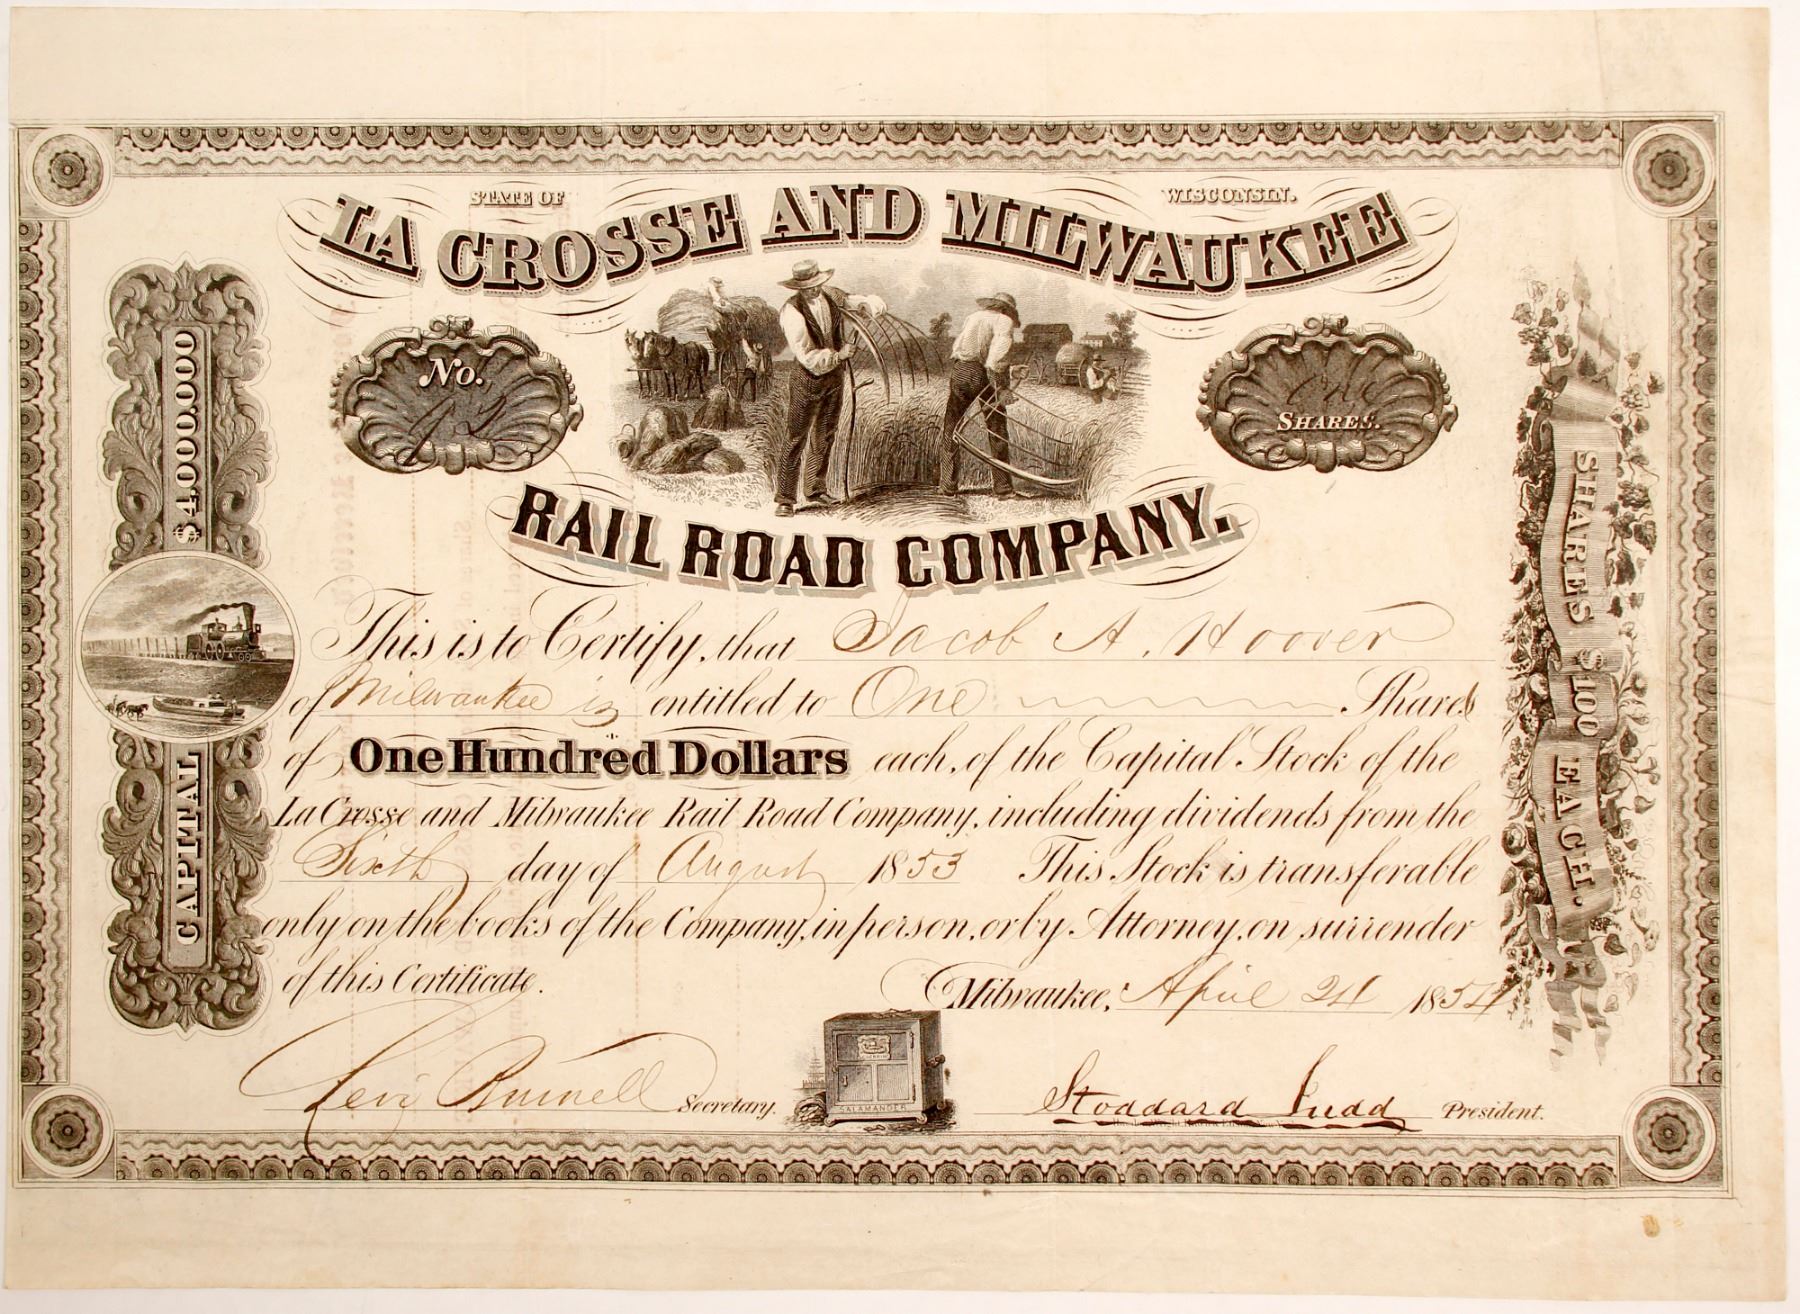 STATE OF WISCONSIN.
LA CROSSE AND MILWAUKEE
No.
92
One
SHARES.
RAIL ROAD COMPANY.
$4.000.000
CAPITAL
SHARES $100 EACH.
This is to Certify, that Jacob A. Hoover
of Milwaukee is entitled to One Shares
of One Hundred Dollars each, of the Capital Stock of the
La Crosse and Milwaukee Rail Road Company, including dividends from the
Sixth day of August 1853 This Stock is transferable
only on the books of the Company, in person, or by Attorney, on surrender
of this Certificate. Milwaukee, April 24 1854
Levi Burnell Secretary. Stoddard Judd President.
SALAMANDER